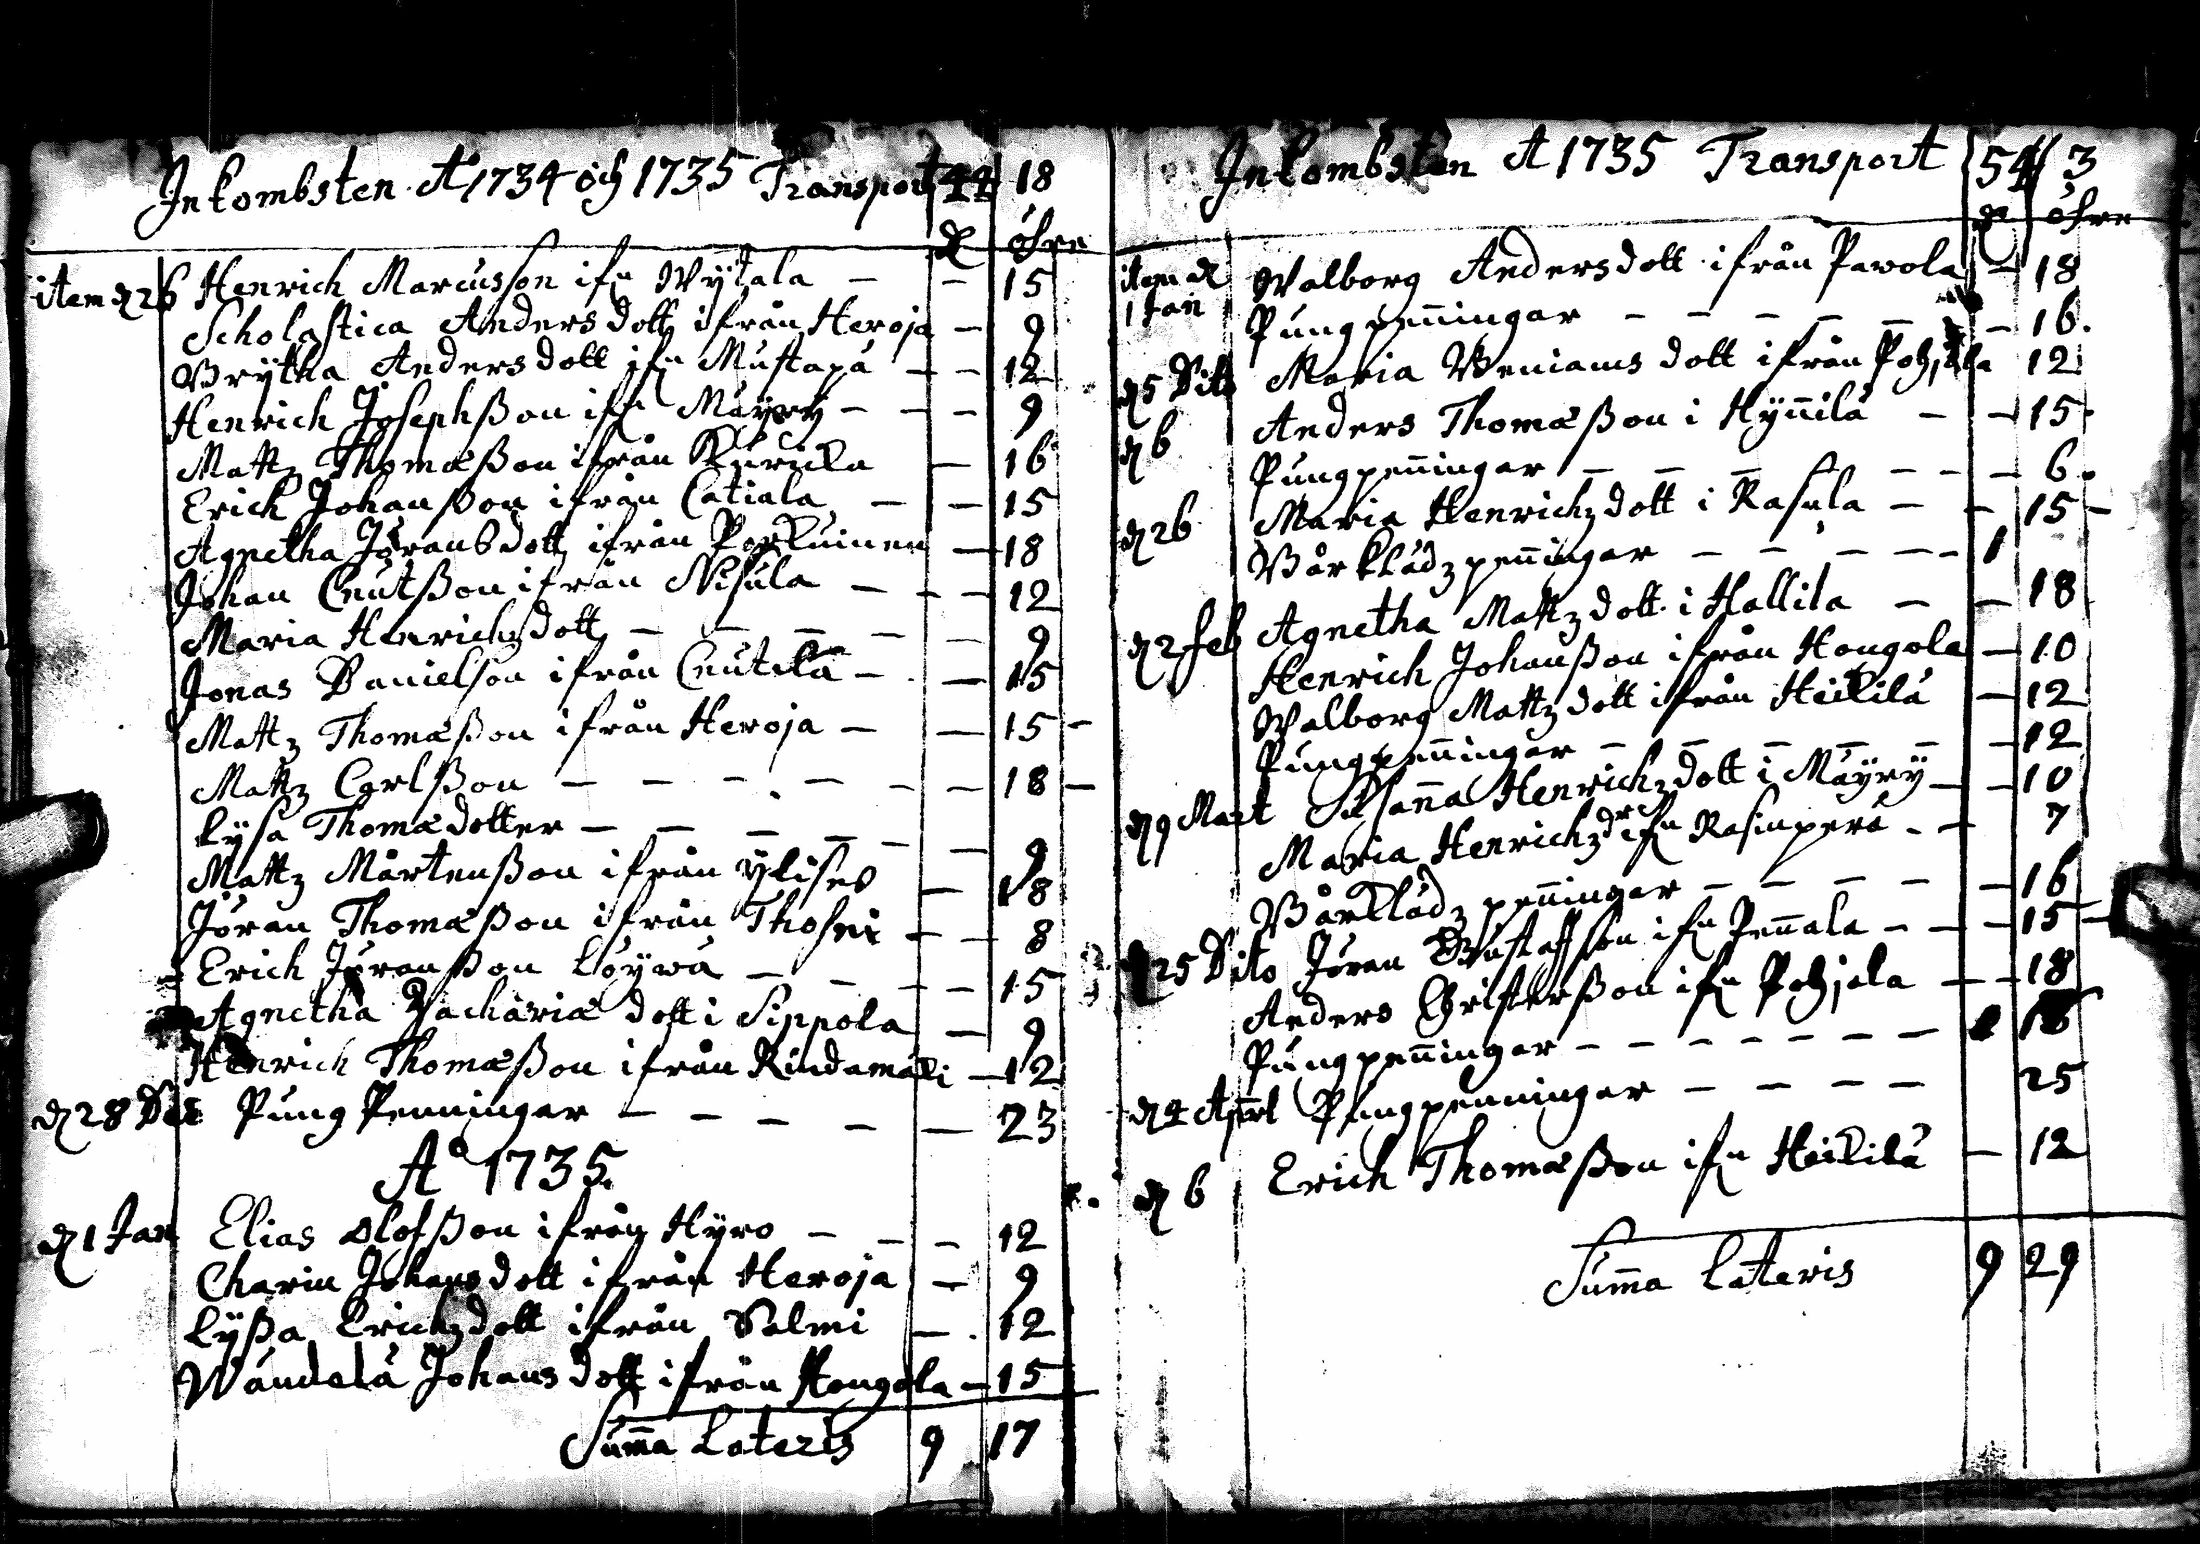 Inkombsten Aº 1734 och 1735 Transport 44 18
D öhre
item d 26 Henrich Marcusson ifn Wÿtala — — 15
Scholastica Andersdott ifrån Heroja — 9
Brÿtha Andersdott ifn Mustapä — — 12
Henrich Josephßon ifn Mäÿrÿ — — — 9
Mattz Thomæßon ifrån Kuricka — 16
Erich Johanßon ifrån Catiala — — 15
Agnetha Jöransdott ifrån Porkuinen — 18
Johan Cnutßon ifrån Nisula — — — 12
Maria Henrichzdott — — — — — 9
Jonas Danielson ifrån Cnutila — — 15
Mattz Thomæßon ifrån Heroja — — 15 —
Mattz Carlßon — — — — — — 18 —
Lÿsa Thomædotter — — — — — — 9
Mattz Mårtenßon ifrån Ÿlises — 18
Jöran Thomæßon ifrån — — 8
Erich Jöranßon Löÿwä — — — — 15
Agnetha Zachariæ dott i Sippola — 9
Henrich Thomæßon ifrån Rindamäki — 12
d 28 Dec Pung Penningar — — — — — 23
Aº 1735.
d 1 Jan Elias Olofßon ifrån Hÿro — — — 12
Charin Johansdott ifrån Heroja — 9
Lÿßa Erichzdott ifrån Salmi — . 12
Wändelä Johansdott ifrån Hongola — 15
Summa Lateris 9 17
Inkombsten A 1735 Transport 54 3
D öhre
item d 1 Jan Walborg Andersdott ifrån Pawola — 18
Pungpeñingar — — — — — — 16.
d 5 Dito Maria Beniamsdott ifrån Pohjala 12
d 6 Anders Thomæßon i Hÿñilä — — 15.
Pungpeñingar — — — — — — 6.
d 26 Maria Henrichzdott i Rasula — — 15 —
Bårklädz peñingar — — — — — 1
d 2 Feb Agnetha Mattzdott i Hallila — — 18
Henrich Johanßon ifrån Hongola — 10
Walborg Mattzdott ifrån Heikilä — 12
Pungpeñingar — — — — — — 12
d 9 Mart Susaña Henrichzdott i Mäÿrÿ — — 10
Maria Henrichzdr ifn Rasinperä — — 7
Bårklädz peñingar — — — — — 16
d 25 Dito Jöran Gustafson ifn Peñala — — — 15 —
Anders Christerßon ifn Pohjola — — 18
Pungpeñingar — — — — — — — 16
d 4 Aprl Pungpenningar — — — — 25
d 6 Erich Thomæßon ifn Heikilä — 12
Summa Lateris 9 29